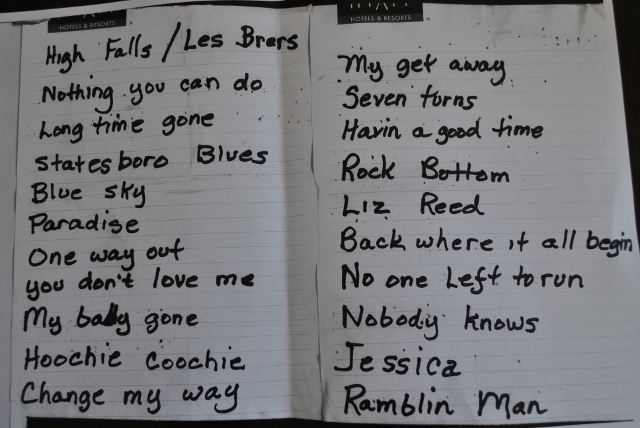 HOTELS & RESORTS
High Falls / Les Brers
Nothing you can do
Long time gone
Statesboro Blues
Blue sky
Paradise
One way out
you don't love me
My bally gone
Hoochie Coochie
Change my way
HOTELS & RESORTS
My get away
Seven turns
Havin a good time
Rock Bottom
Liz Reed
Back where it all begin
No one Left to run
Nobody knows
Jessica
Ramblin Man